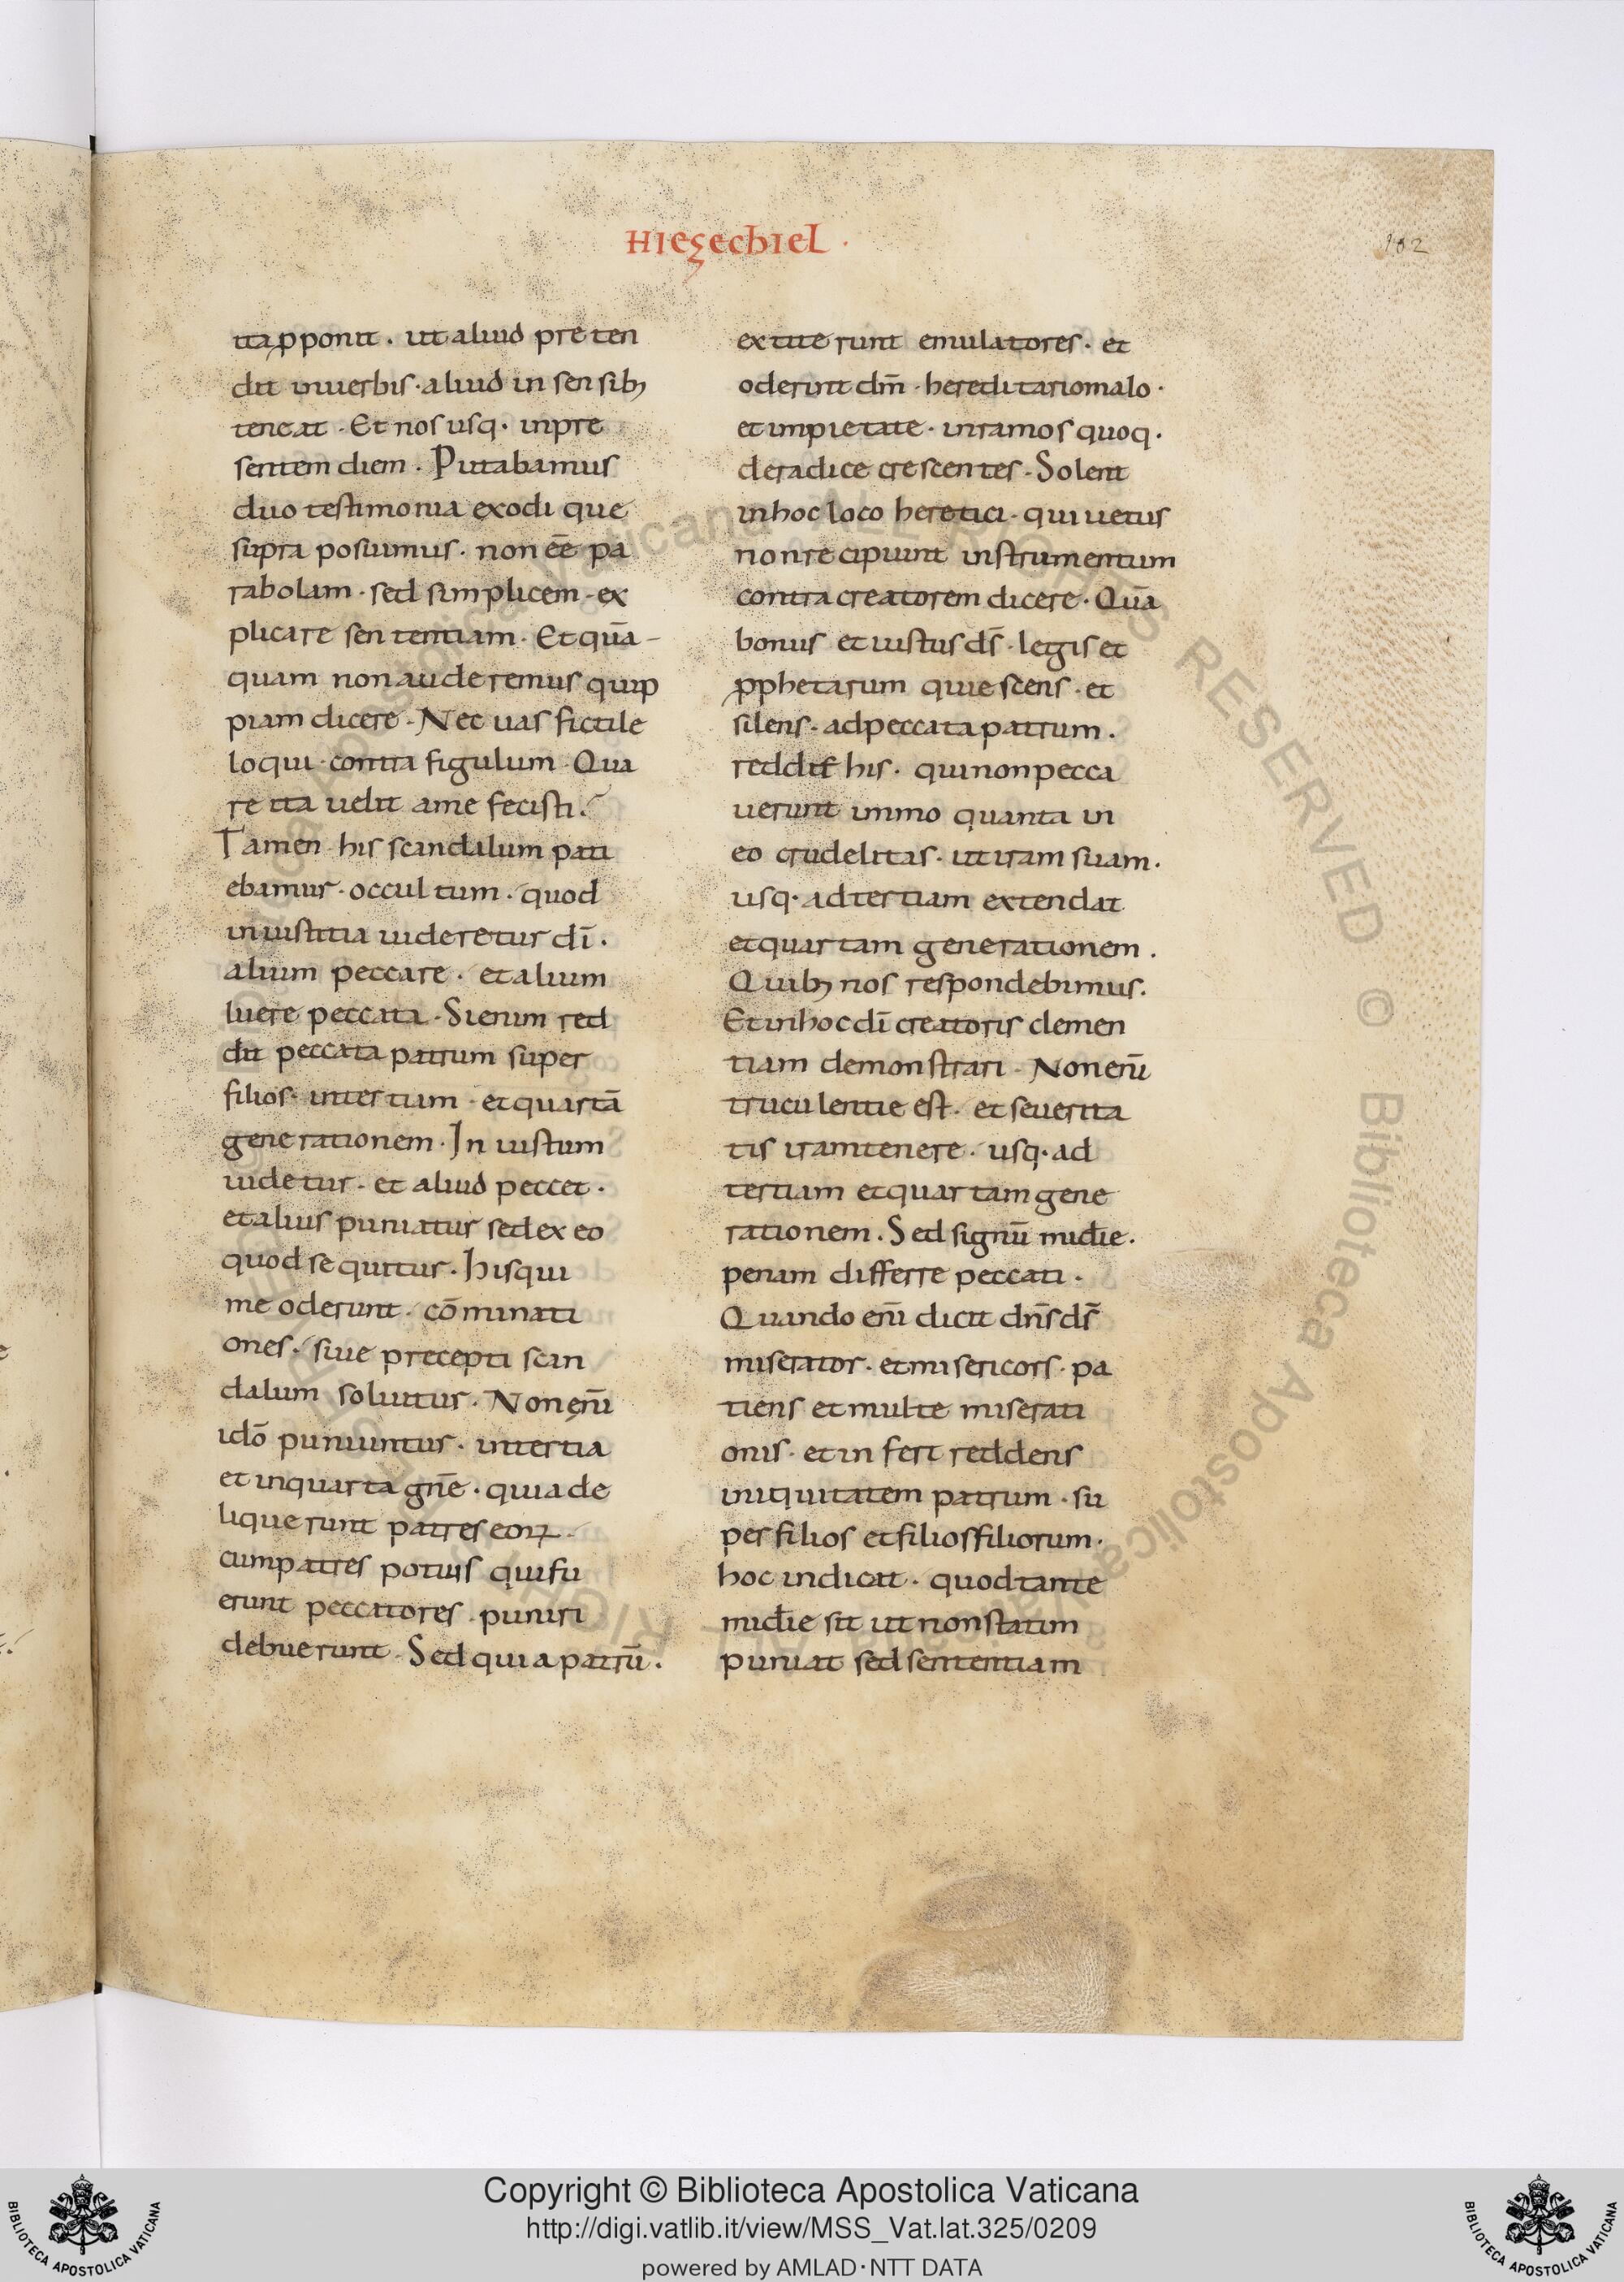 HIEZECHIEL ·
102
ita ꝓponit · ut aliud preten
dit in uerbis · aliud in sensib;
teneat · Et nos usq· in pre
sentem diem · Putabamus
duo testimonia exodi que
supra posuimus · non eē̄ pa
rabolam · sed simplicem · ex
plicare sententiam · Et quā-
quam non auderemus quip
piam dicere · Nec uas fictile
loqui · contra figulum · Qua
re ita uelit a me fecisti ·
Tamen his scandalum pati
ebamur · occultum · quod
iniustitia uideretur dī ·
alium peccare · et alium
luere peccata · Si enim red
dit peccata patrum super
filios · in tertiam · et quartā
generationem · In iustum
uidetur · et aliud peccet ·
et alius puniatur sed ex eo
quod sequitur · his qui
me oderunt · cōminati
ones · siue precepti scan
dalum soluitur · Non eni̅
idō puniuntur · in tertia
et in quarta gnē · quia de
liquerunt patres eoꝝ ·
cum patres potius qui fu
erunt peccatores · puniri
debuerunt · Sed quia patrū ·
extiterunt emulatores · et
oderint dm̄ · hereditario malo ·
et impietate · in ramos quoq·
de radice crescentes · Solent
in hoc loco heretici · qui uetus
non recipiunt instrumentum
contra creatorem dicere · Quā
bonus et iustus ds̄ · legis et
ꝓphetarum quiescens · et
silens · ad peccata patrum ·
reddit his · qui non pecca
uerunt immo quanta in
eo crudelitas · ut iram suam ·
usq· ad tertiam extendat
et quartam generationem ·
Quib; nos respondebimus ·
Et in hoc dī creatoris clemen
tiam demonstrari · Non eni̅
truculentie est · et seuerita
tis iram tenere · usq· ad
tertiam et quartam gene
rationem · Sed signū mid̄ie ·
penam differre peccati ·
Quando eni̅ dicit dn̄s ds̄
miserator · et misericors · pa
tiens et multe miserati
onis · et infert reddens
iniquitatem patrum · su
per filios et filios filiorum ·
hoc indicat · quod tante
mid̄ie sit ut non statim
puniat sed sententiam
Copyright © Biblioteca Apostolica Vaticana
http://digi.vatlib.it/view/MSS_Vat.lat.325/0209
powered by AMLAD·NTT DATA